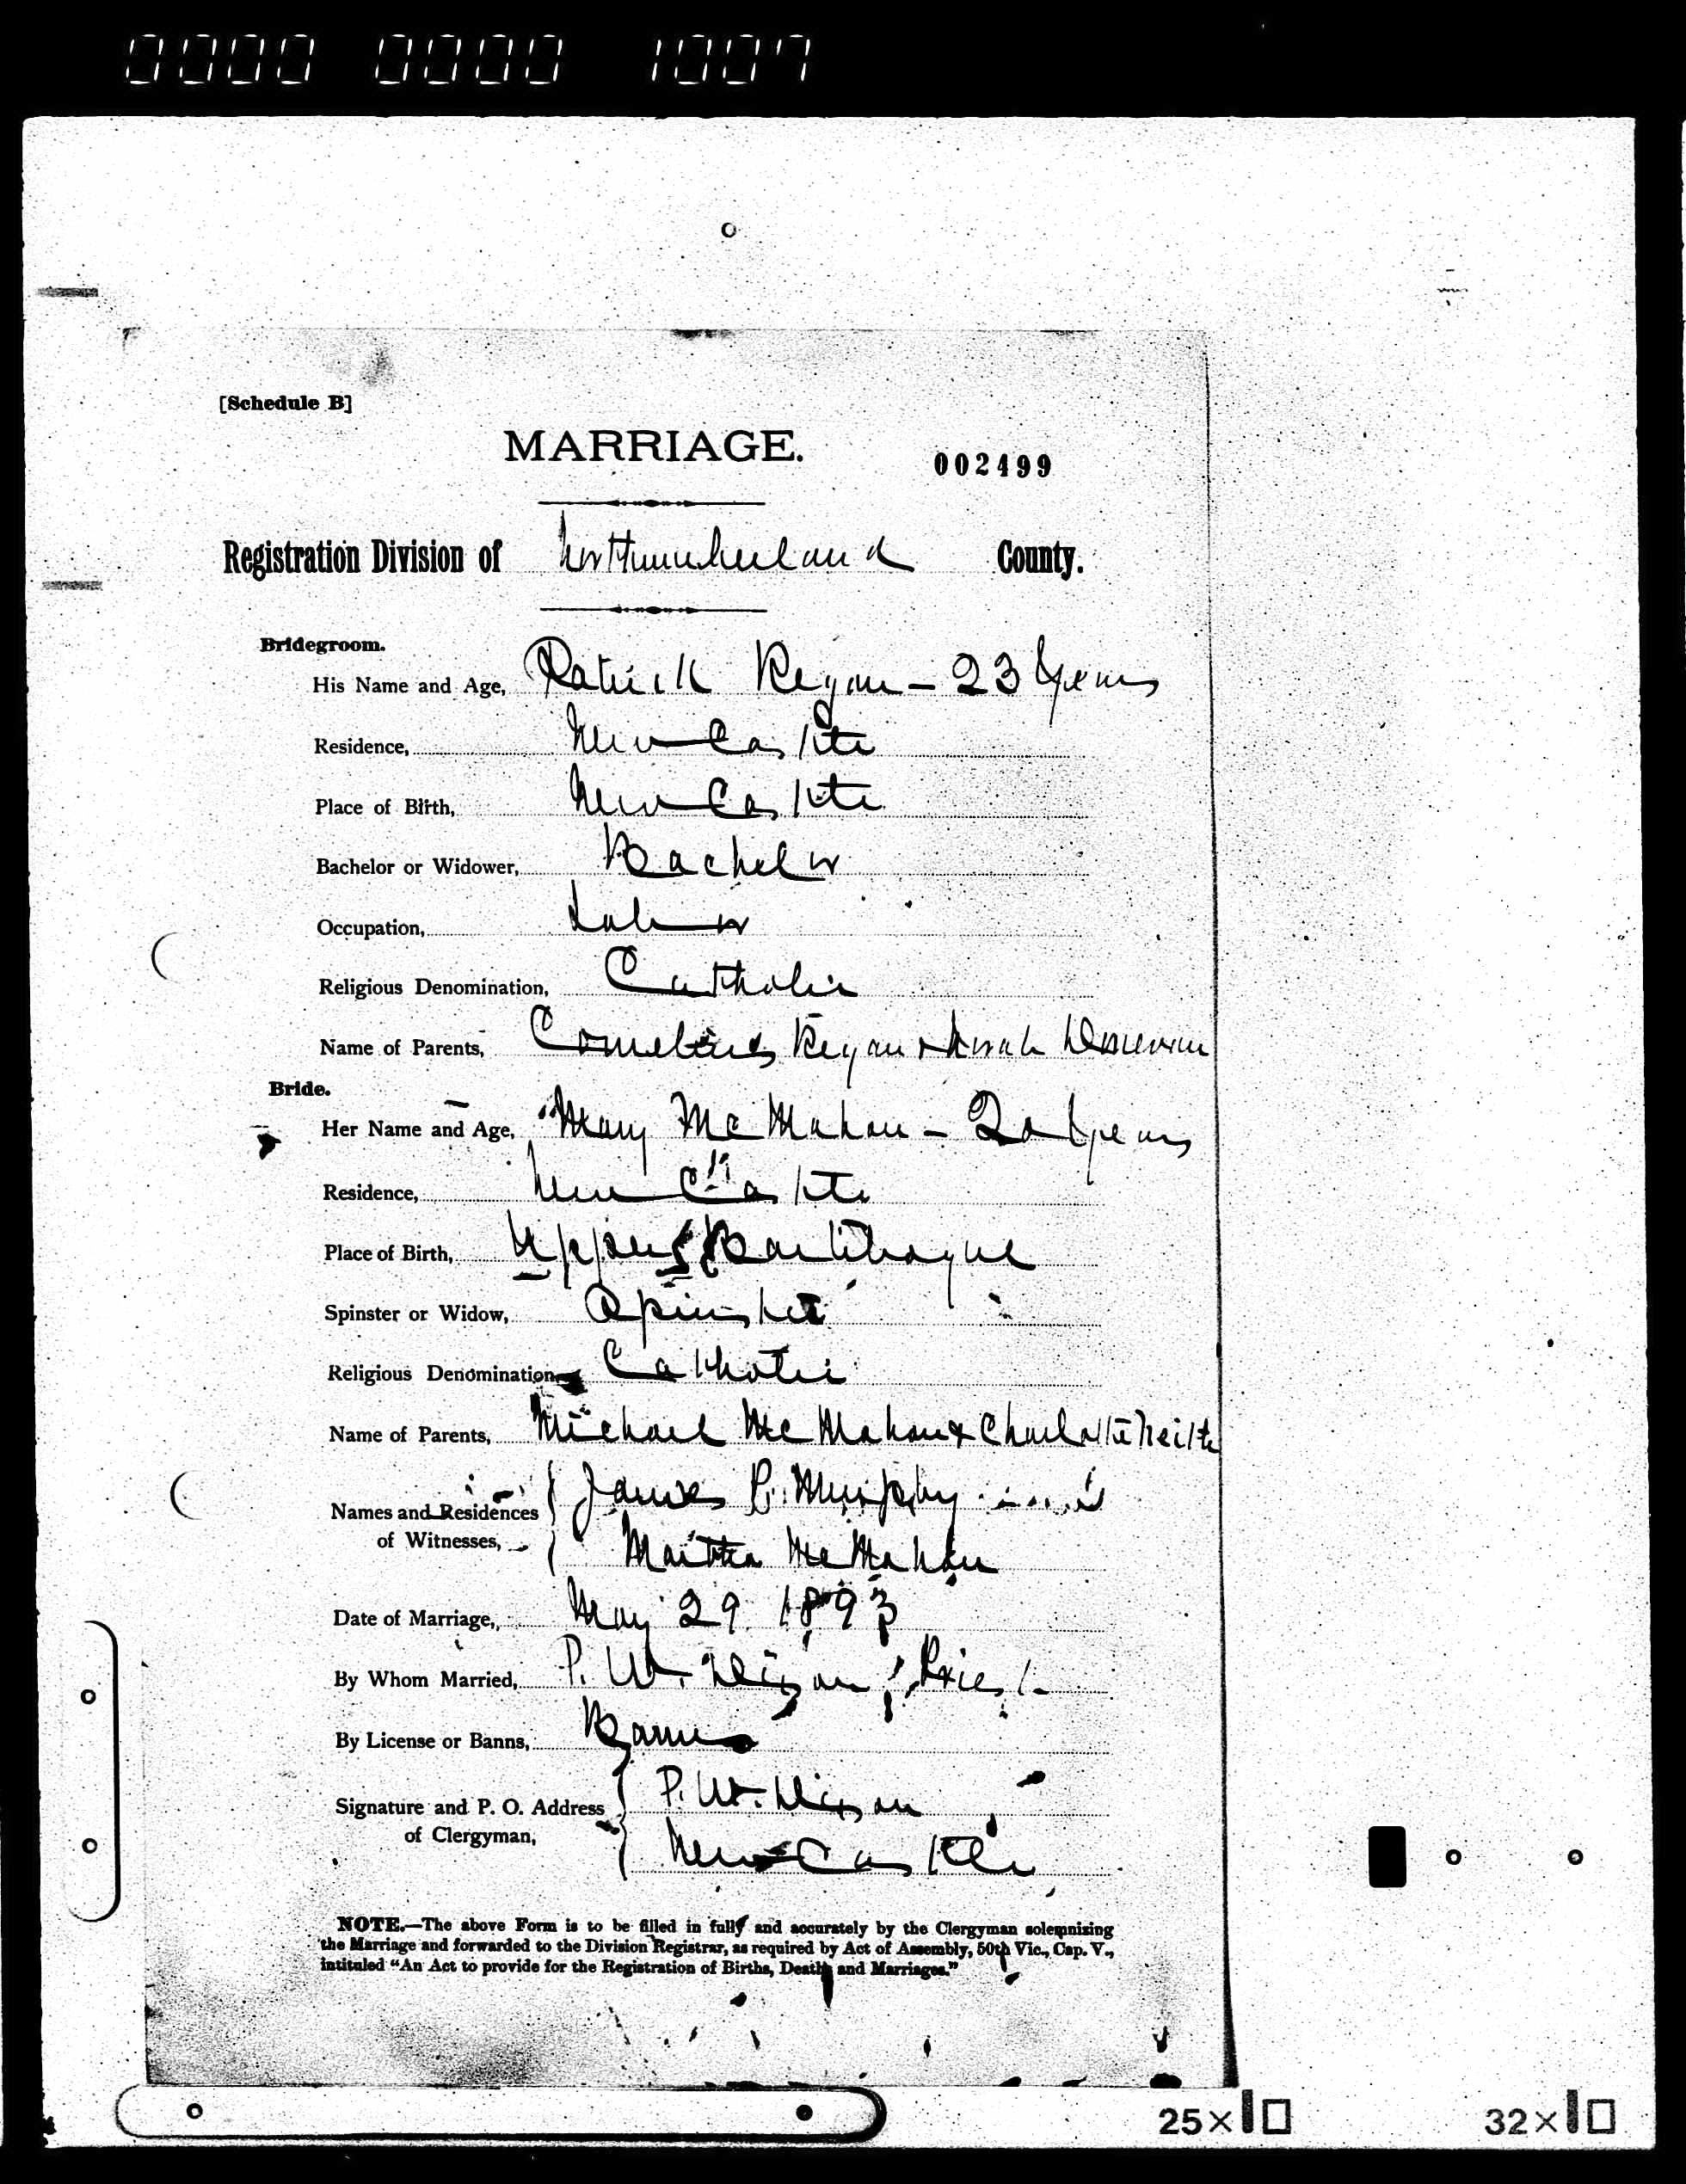 0000 0000 1007
[Schedule B]
MARRIAGE.
002499
Registration Division of Northumberland County.
Bridegroom.
His Name and Age, Patrick Regan - 23 years
Residence, New Castle
Place of Birth, New Castle
Bachelor or Widower, Bachelor
Occupation, Labor
Religious Denomination, Catholic
Name of Parents, Cornelius Regan & Donovan
Bride.
Her Name and Age, Mary McMahon - 20 years
Residence, New Castle
Place of Birth, Upper
Spinster or Widow, Spinster
Religious Denomination Catholic
Name of Parents, Michael McMahon & Charlotte
Names and Residences of Witnesses, James P. Murphy
Martha McMahon
Date of Marriage, May 29 1893
By Whom Married, P. W. Dixon, Priest
By License or Banns, Banns
Signature and P. O. Address of Clergyman, P. W. Dixon
New Castle
NOTE.—The above Form is to be filled in fully and accurately by the Clergyman solemnizing
the Marriage and forwarded to the Division Registrar, as required by Act of Assembly, 50th Vic., Cap. V.,
intituled "An Act to provide for the Registration of Births, Deaths and Marriages."
25×
32×